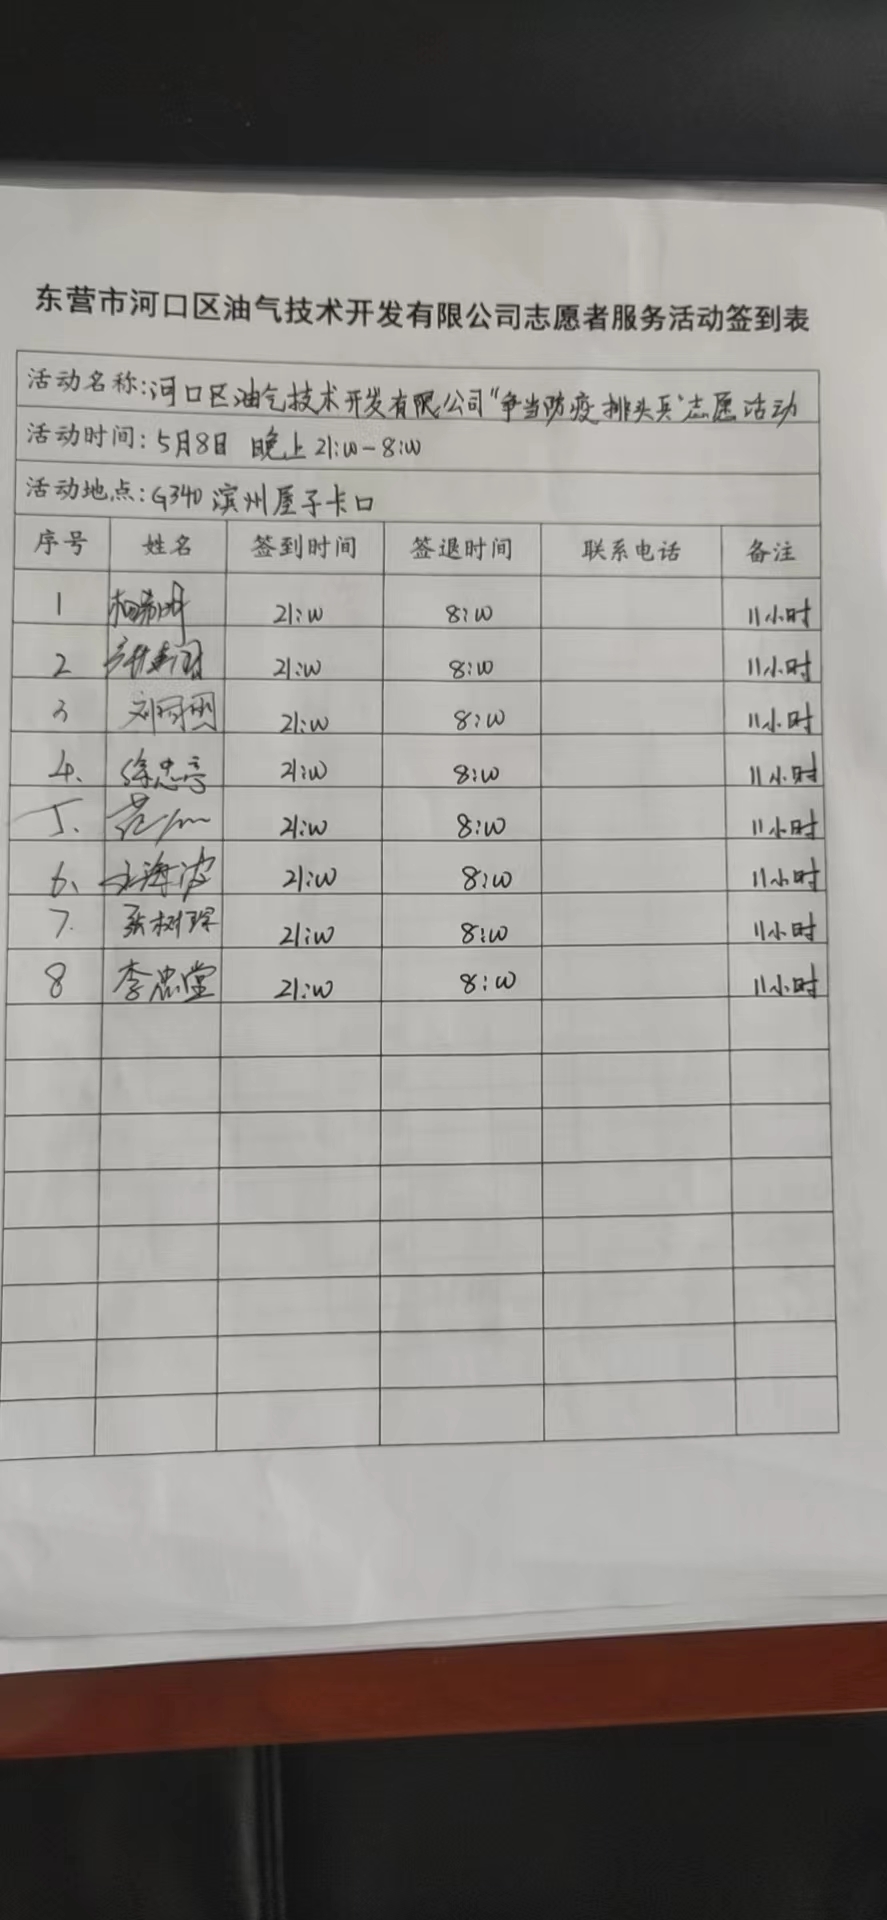 东营市河口区油气技术开发有限公司志愿者服务活动签到表
活动名称:河口区油气技术开发有限公司“争当防疫排头兵”志愿活动
活动时间:5月8日 晚上 21:00-8:00
活动地点:G340 滨州屋子卡口
序号 姓名 签到时间 签退时间 联系电话 备注
1 21:00 8:00 11小时
2 21:00 8:00 11小时
3 21:00 8:00 11小时
4、 徐忠亭 21:00 8:00 11小时
5、 21:00 8:00 11小时
6、 21:00 8:00 11小时
7. 21:00 8:00 11小时
8 李忠堂 21:00 8:00 11小时